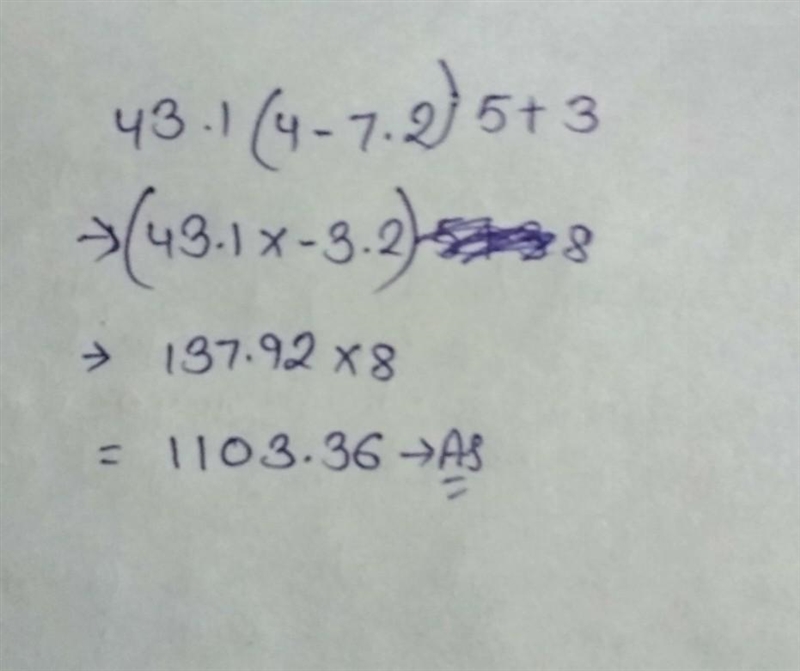 43.1 (4 - 7.2) 5 + 3
→ (43.1 x - 3.2) 8
→ 137.92 x 8
= 1103.36 → As